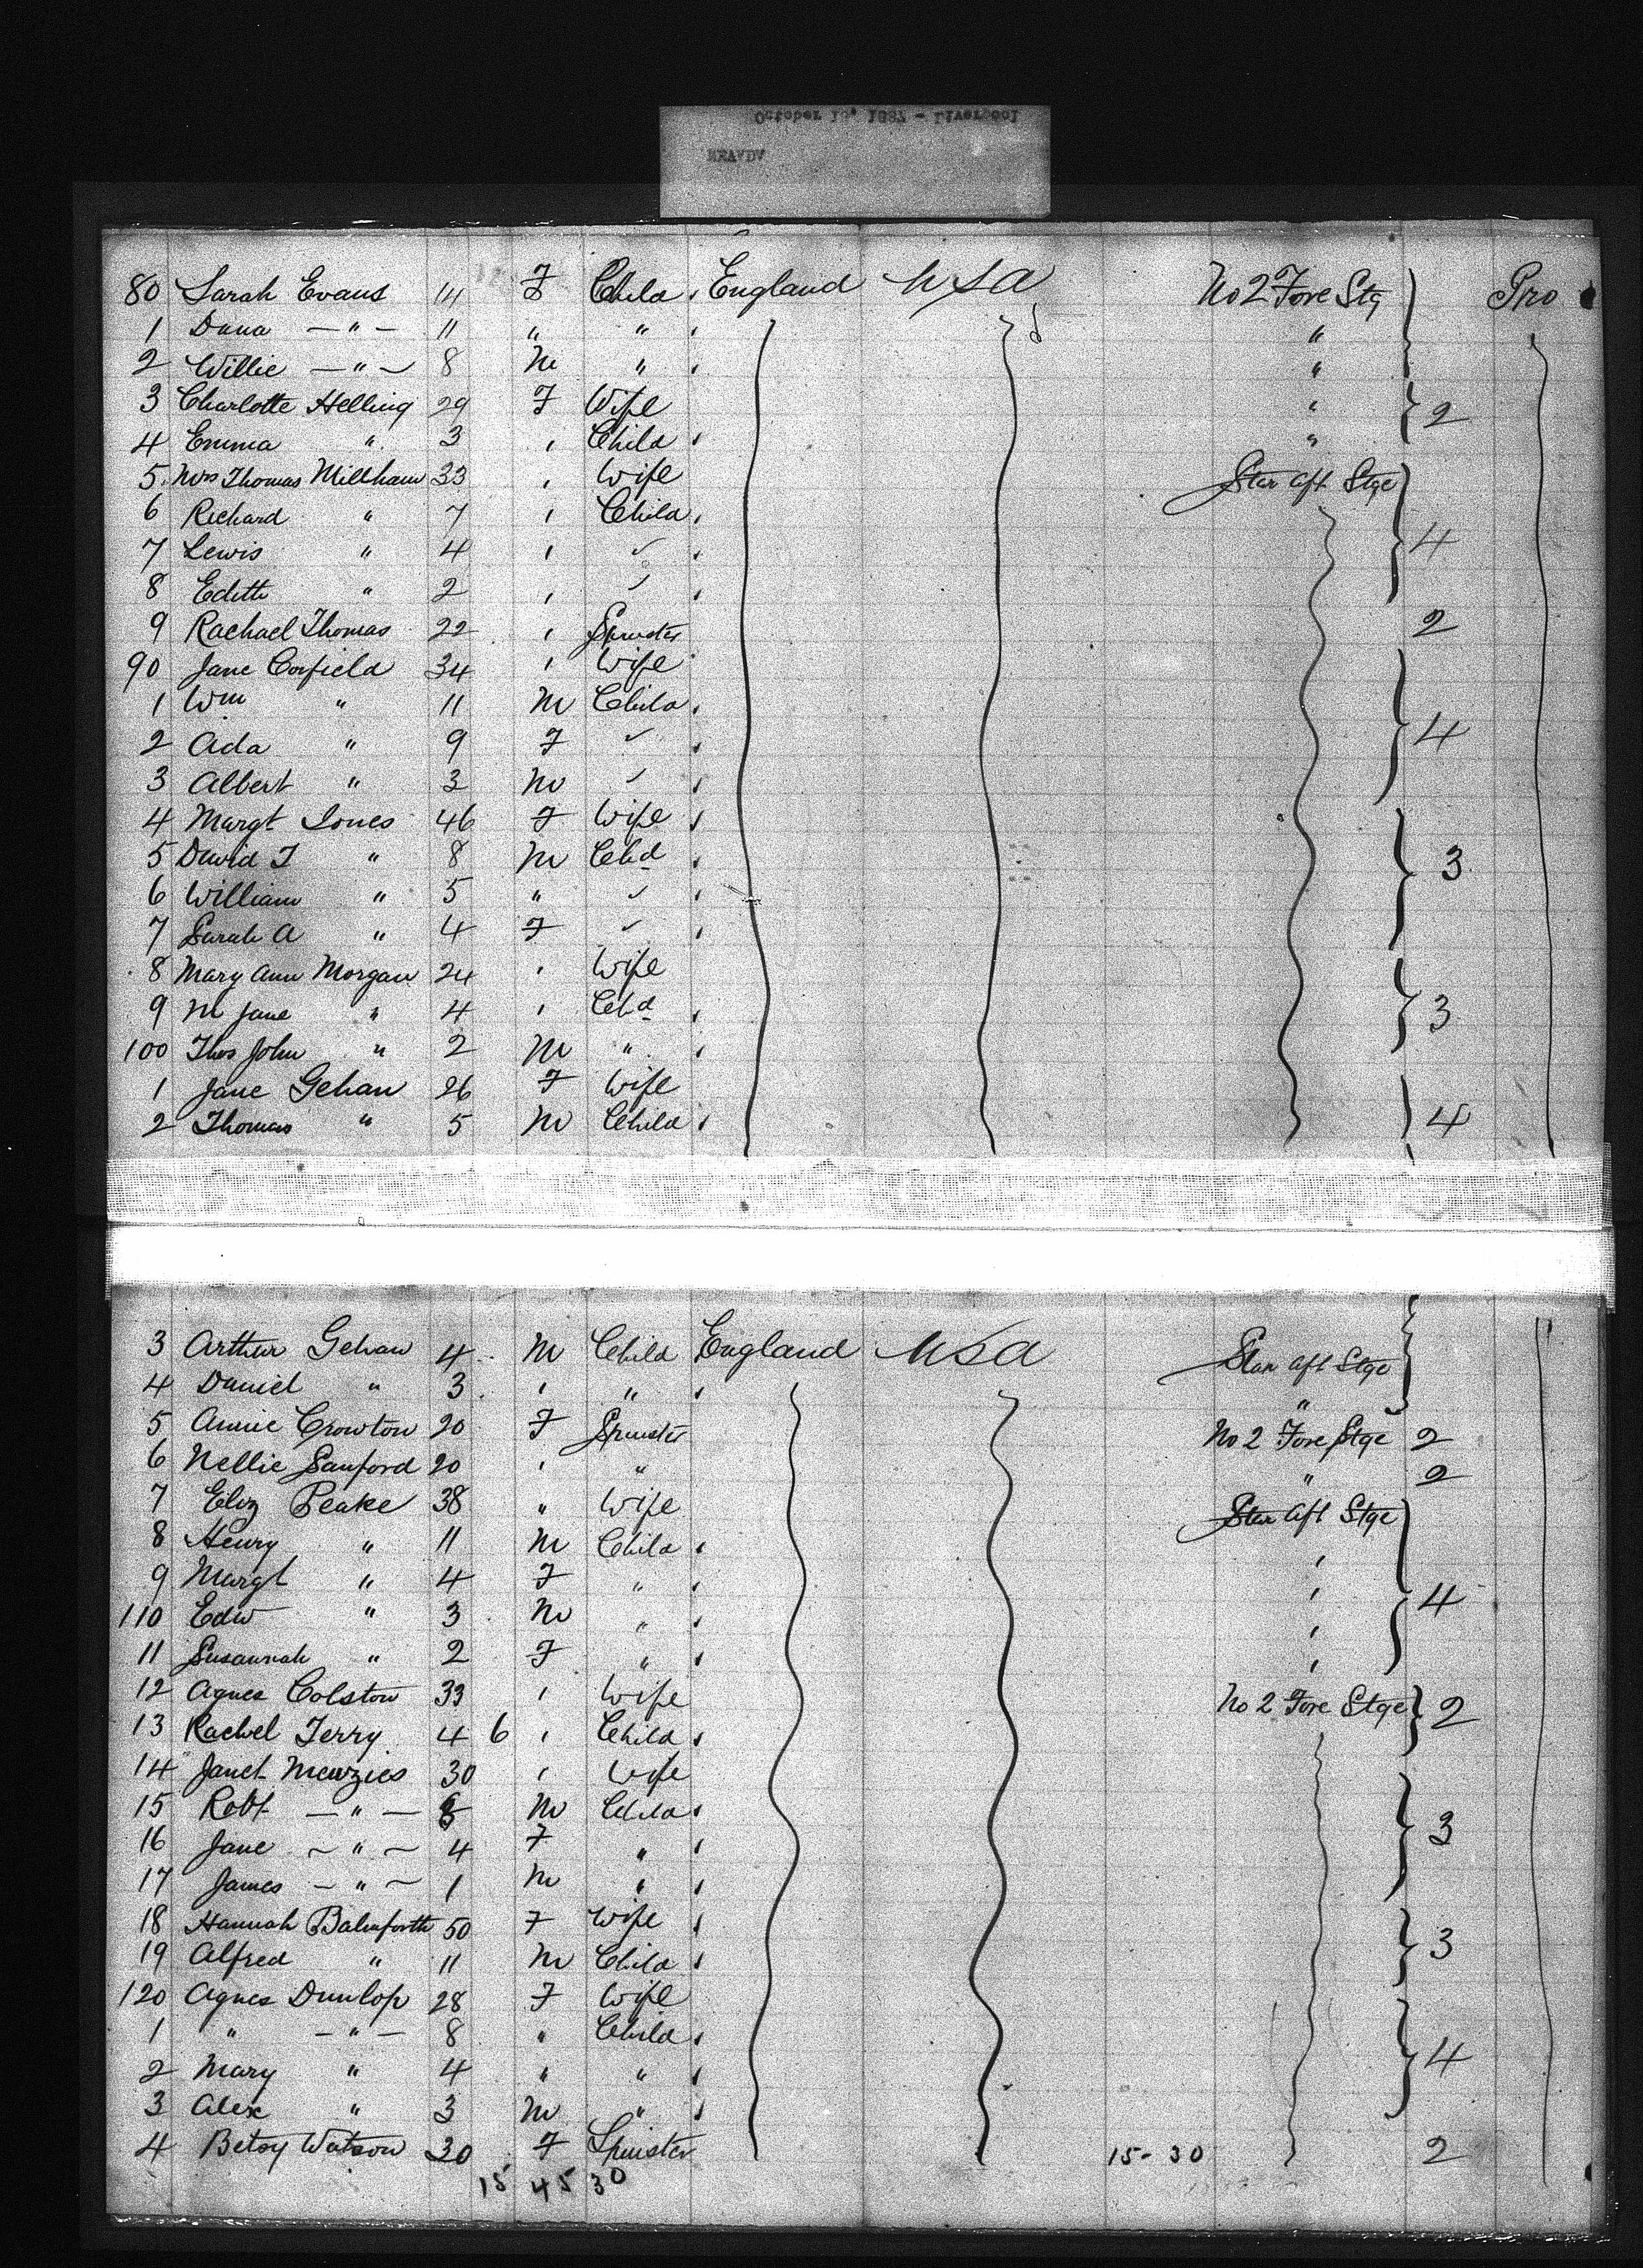 October 13, 1887 - Liverpool
80 Sarah Evans 14 F Child " England USA No 2 Fore Stg Pro
1 Dana — " — 11 " " "
2 Willie — " — 8 M " " "
3 Charlotte Helling 29 F Wife " 2
4 Emma " 3 " Child " "
5 Mrs Thomas Millham 33 " Wife Star aft Stge
6 Richard " 7 " Child " 4
7 Lewis " 4 " ✓ "
8 Edith " 2 " ✓ "
9 Rachael Thomas 22 " Spinster 2
90 Jane Corfield 34 " Wife
1 Wm " 11 M Child "
2 Ada " 9 F ✓ " 4
3 Albert " 3 M ✓ "
4 Margt Jones 46 F Wife "
5 David J " 8 M Chd " 3
6 William " 5 " ✓ "
7 Sarah A " 4 F ✓ "
8 Mary Ann Morgan 24 " Wife
9 M Jane " 4 " Chd " 3
100 Thos John " 2 M " "
1 Jane Gehan 26 F Wife
2 Thomas " 5 M Child " 4
3 Arthur Gehan 4 M Child England USA Star aft Stge
4 Daniel " 3 " " " "
5 Annie Crowton 20 F Spinster No 2 Fore Stge 2
6 Nellie Sanford 20 " " " 2
7 Eliz Peake 38 " Wife Star aft Stge
8 Henry " 11 M Child " "
9 Margt " 4 F " " " 4
110 Edw " 3 M " " "
11 Susannah " 2 F " " "
12 Agnes Colston 33 " Wife No 2 Fore Stge 2
13 Rachel Terry 4 6 " Child "
14 Janet Menzies 30 " Wife
15 Robt — " — 8 M Child " 3
16 Jane — " — 4 F " "
17 James — " — 1 M " "
18 Hannah Balmforth 50 F Wife "
19 Alfred " 11 M Child " 3
120 Agnes Dunlop 28 F Wife
1 " — " — 8 " Child "
2 Mary " 4 " " " 4
3 Alex " 3 M " "
4 Betsy Watson 30 F Spinster 15-30 2
15 45 30